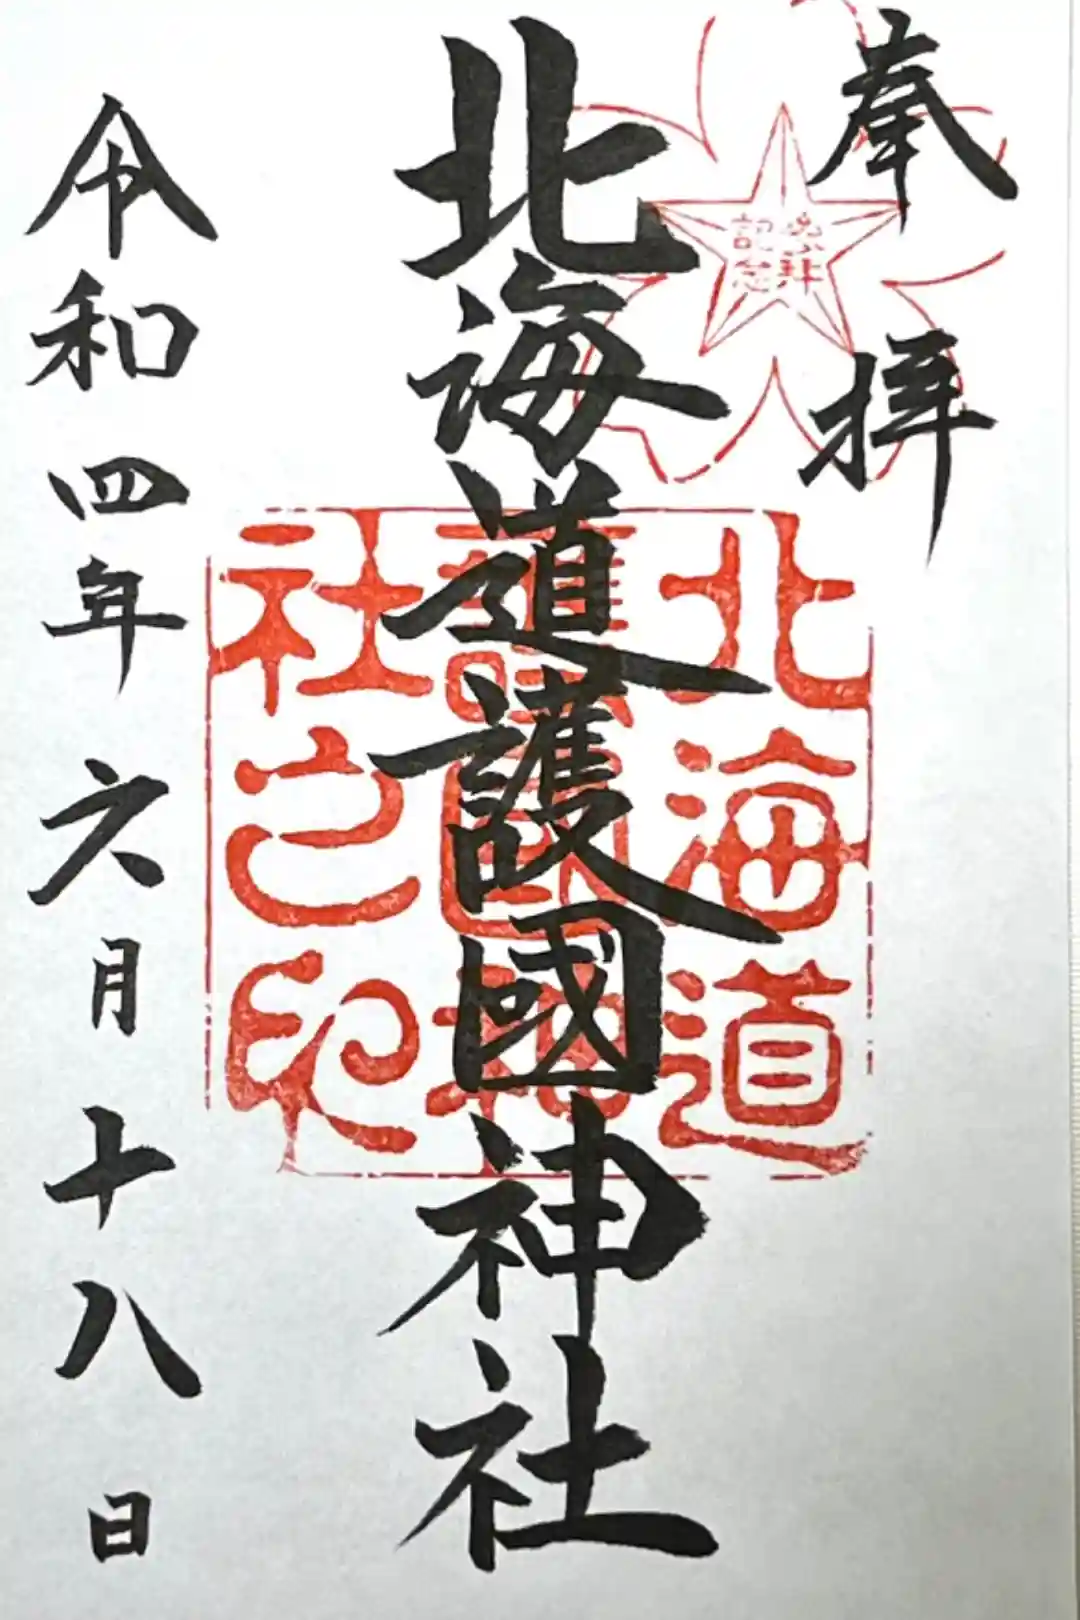 奉拝
参拝
記念
北海道護國神社
北海道
護國神
社之印
令和四年六月十八日